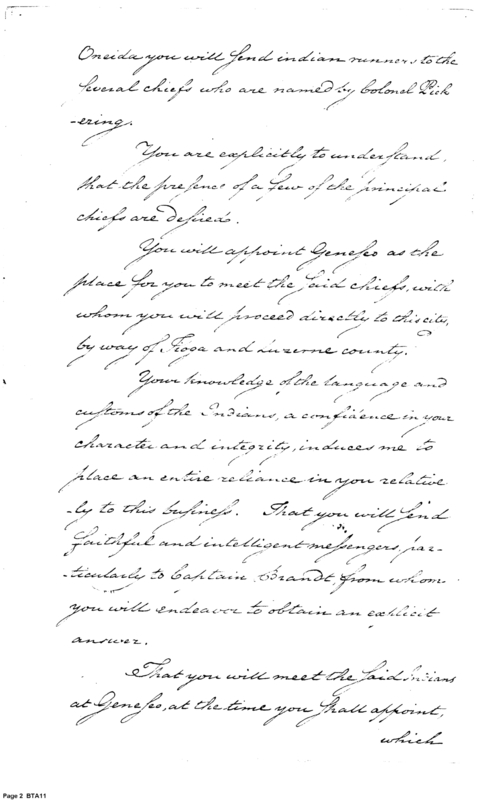 Oneida you will send indian runners to the
several chiefs who are named by Colonel Pick
-ering.
You are explicitly to understand,
that the presence of a few of the principal
chiefs are desired.
You will appoint Geneseo as the
place for you to meet the said chiefs, with
whom you will proceed directly to this city,
by way of Tioga and Luzerne county.
Your knowledge of the language and
customs of the Indians, a confidence in your
character and integrity, induces me to
place an entire reliance in you relative
-ly to this business. That you will send
faithful and intelligent messengers, par-
-ticularly to Captain Brandt, from whom
you will endeavor to obtain an explicit
answer.
That you will meet the said Indians
at Geneseo, at the time you shall appoint,
which
Page 2 BTA11